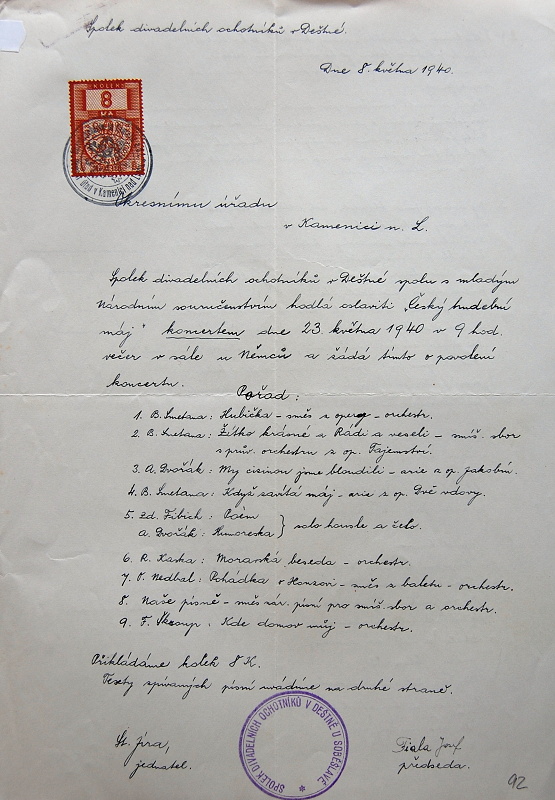 Spolek divadelních ochotníků v Deštné.
Dne 8. května 1940.
KOLEK
8
Okresnímu úřadu
v Kamenici n. L.
Spolek divadelních ochotníků v Deštné spolu s mladým
Národním souručenstvím hodlá oslaviti „Český hudební
máj" koncertem dne 23. května 1940 v 9 hod.
večer v sále u Němců a žádá tímto o povolení
koncertu.
Pořad:
1. B. Smetana: Hubička - směs z opery - orchestr.
2. B. Smetana: Žitko krásné a Rádi a veseli - smíš. sbor
s prův. orchestru z op. Tajemství.
3. A. Dvořák: My cizinou jsme bloudili - arie z op. Jakobín.
4. B. Smetana: Když zavítá máj - arie z op. Dvě vdovy.
5. Zd. Fibich: Poém
A. Dvořák: Humoreska } solo housle a čelo.
6. R. Kaska: Moravská beseda - orchestr.
7. O. Nedbal: Pohádka o Honzovi - směs z baletu - orchestr.
8. Naše písně - směs nár. písní pro smíš. sbor a orchestr.
9. F. Škroup: Kde domov můj - orchestr.
Přikládáme kolek 8 K.
Texty zpívaných písní uvádíme na druhé straně.
St. Jíra,
jednatel.
SPOLEK DIVADELNÍCH OCHOTNÍKŮ V DEŠTNÉ U SOBĚSLAVĚ
Fiala Josef
předseda.
92